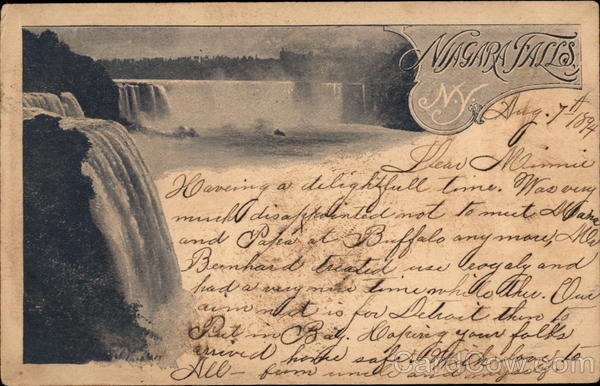 NIAGARA FALLS.
N.Y.
Aug. 7th 1894
Dear Minnie
Haveing a delightfull time. Was very
much disappointed not to meet Mama
and Papa at Buffalo any more, Mr
Bernhard treated use royaly and
had a very nice time while there. Our
aim next is for Detroit then to
Put in Bay. Hopeing your folks
arrived home safe. Best love to
All- from uncle and
CardCow.com